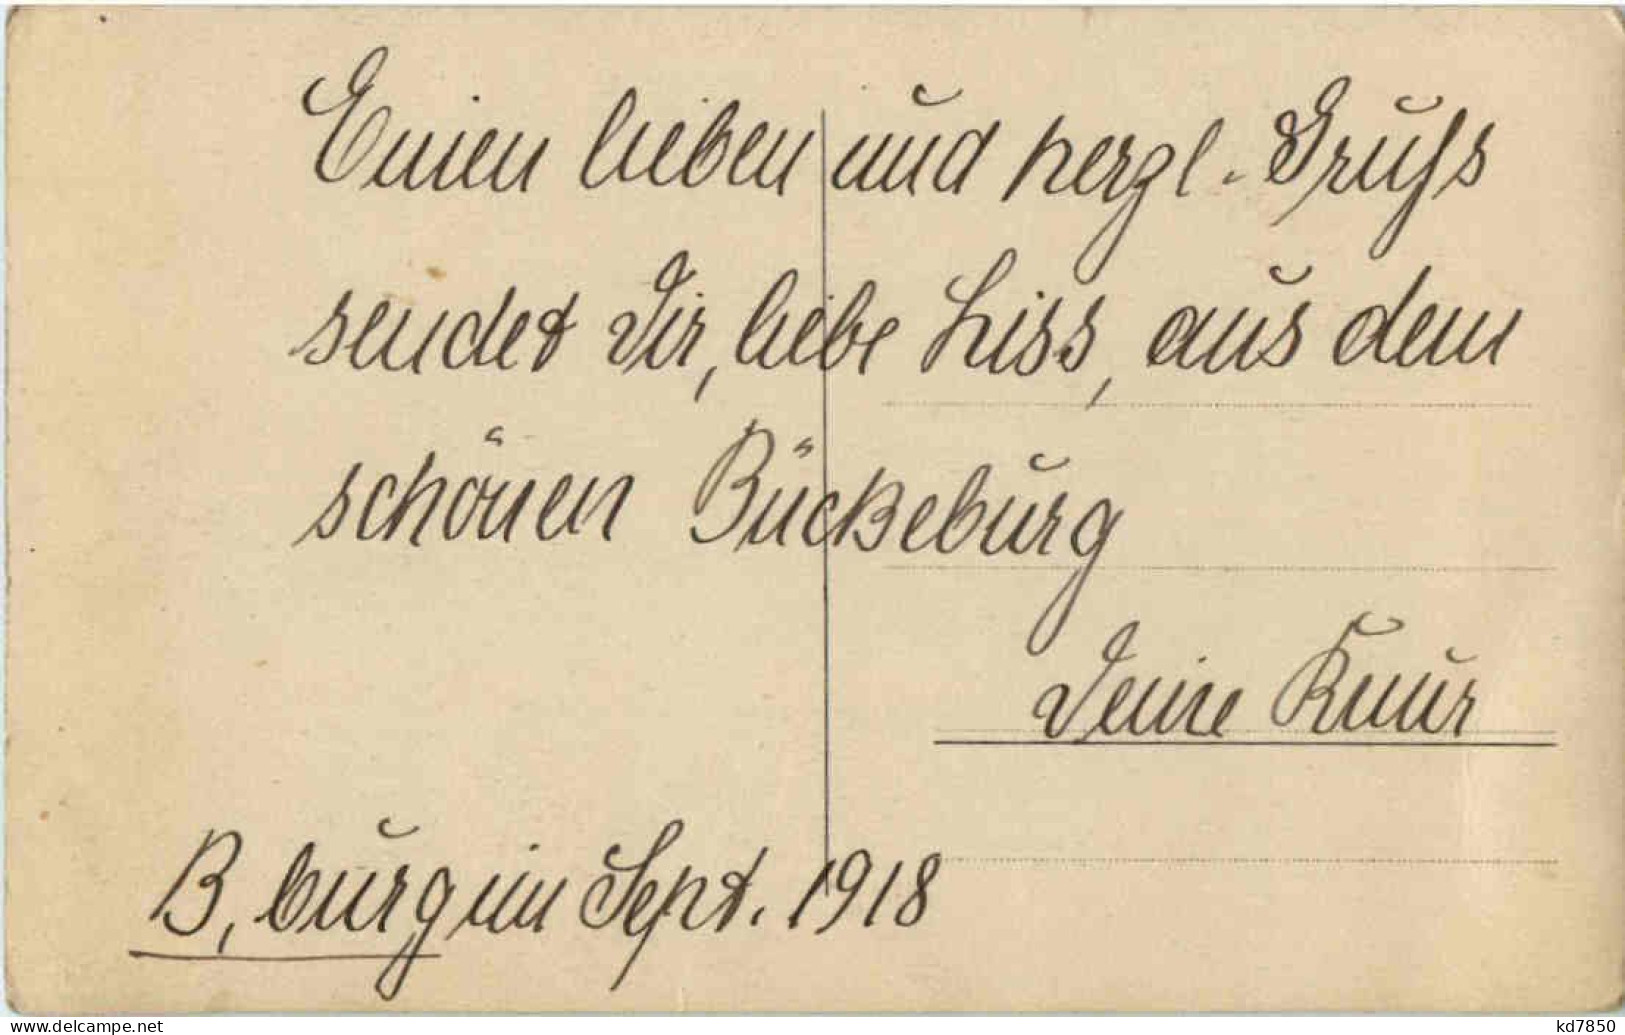 Einen lieben und herzl. Gruss
sendet Dir, liebe Liss, aus dem
schönen Bückeburg
Deine
B, burg im Sept. 1918
www.delcampe.net
kd7850